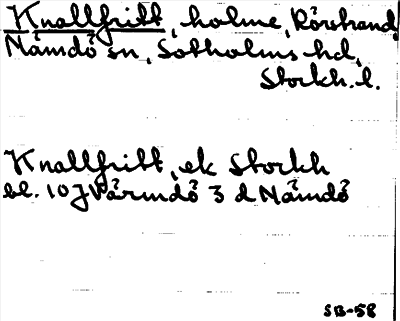 Knallfritt, holme, Rörstrand,
Nämdö sn, Sotholms hd,
Stockh. l.
Knallfritt, ek Stockh
bl. 10 J Värmdö 3 d Nämdö
SB-58